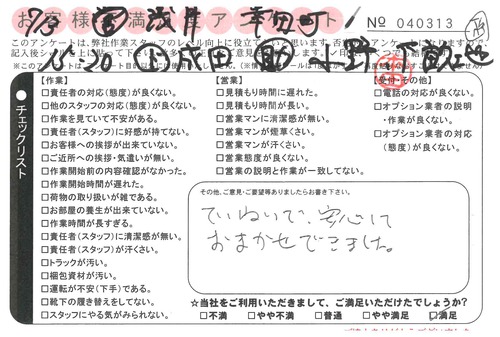 お客様満足度アンケート
No 040313
【作業】
□責任者の対応(態度)が良くない。
□他のスタッフの対応(態度)が良くない。
□作業を見ていて不安がある。
□責任者(スタッフ)に好感が持てない。
□お客様への挨拶が出来ていない。
□ご近所への挨拶・気遣いが無い。
□作業開始前の内容確認がなかった。
□作業開始時間が遅れた。
□荷物の取り扱いが雑である。
□お部屋の養生が出来ていない。
□作業時間が長すぎる。
□責任者(スタッフ)に清潔感が無い。
□責任者(スタッフ)が汗くさい。
□トラックが汚い。
□梱包資材が汚い。
□運転が不安(下手)である。
□靴下の履き替えをしてない。
□スタッフにやる気がみられない。
【営業】
□見積もり時間に遅れた。
□見積もり時間が長い。
□営業マンに清潔感が無い。
□営業マンが煙草くさい。
□営業マンが汗くさい。
□営業態度が良くない。
□営業の説明と作業が一致してない。
【受付・その他】
□電話の対応が良くない。
□オプション業者の説明
・作業が良くない。
□オプション業者の対応
(態度)が良くない。
チェックリスト
その他、ご意見・ご要望等ありましたらお書き下さい。
ていねいで、安心して
おまかせできました。
☆当社をご利用いただきまして、ご満足いただけたでしょうか?
□不満 □やや不満 □普通 □やや満足 □満足